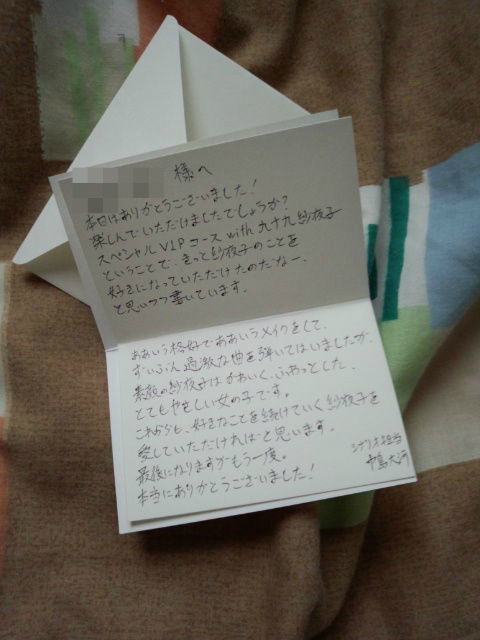 様へ
本日はありがとうございました!
楽しんでいただけましたでしょうか?
スペシャルVIPコース with 九十九紗夜子
ということで、きっと紗夜子のことを
好きになっていただけたのだなー、
と思いつつ書いています。
ああいう格好でああいうメイクをして、
ずいぶん過激な曲を弾いてはいましたが、
素顔の紗夜子はかわいく、ふわっとした、
とてもやさしい女の子です。
これからも、好きなことを続けていく紗夜子を
愛していただければと思います。
最後になりますがもう一度。
本当にありがとうございました!
シナリオ担当
中島大河